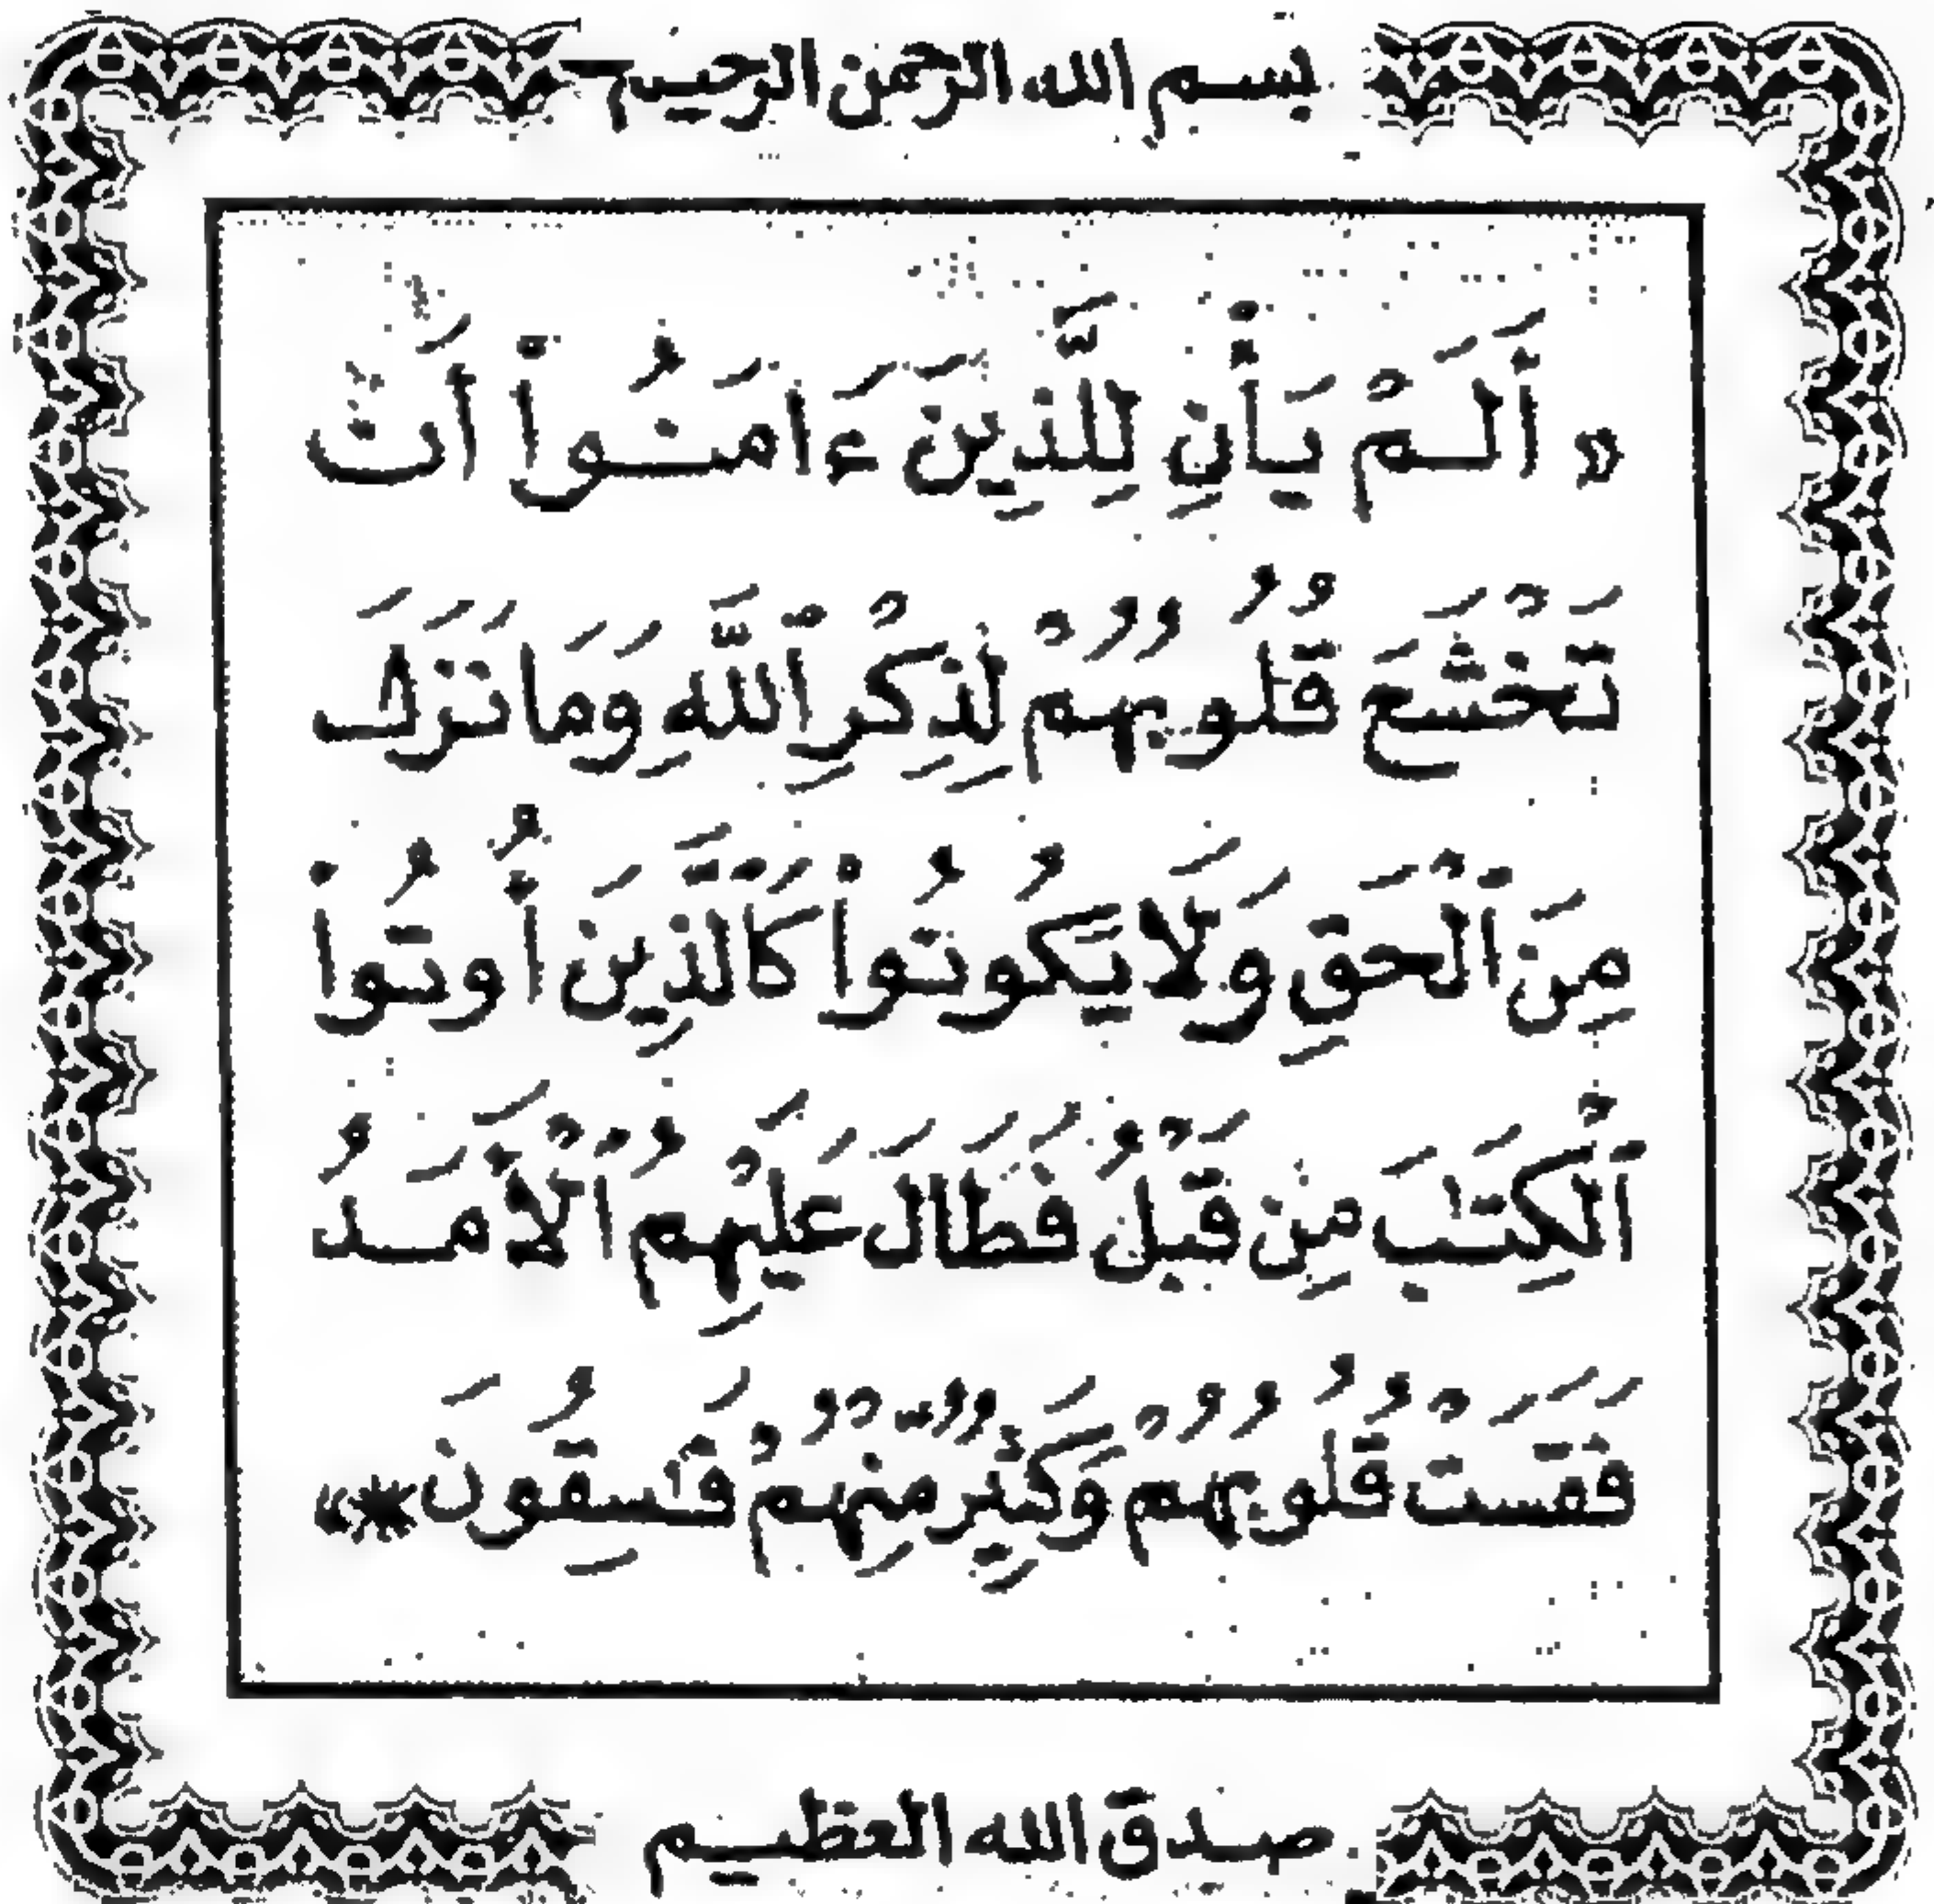 بسم الله الرحمن الرحيم
« أَلَمْ يَأْنِ لِلَّذِينَ ءَامَنُوٓا۟ أَن
تَخْشَعَ قُلُوبُهُمْ لِذِكْرِ ٱللَّهِ وَمَا نَزَلَ
مِنَ ٱلْحَقِّ وَلَا يَكُونُوا۟ كَٱلَّذِينَ أُوتُوا۟
ٱلْكِتَٰبَ مِن قَبْلُ فَطَالَ عَلَيْهِمُ ٱلْأَمَدُ
فَقَسَتْ قُلُوبُهُمْ وَكَثِيرٌ مِّنْهُمْ فَٰسِقُونَ * »
صدق الله العظيم